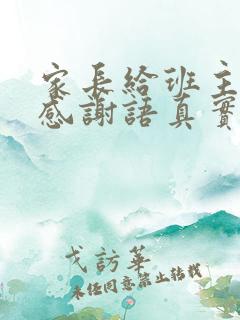 家長給班主
感謝語真實
戈訪華
未經同意禁止轉載